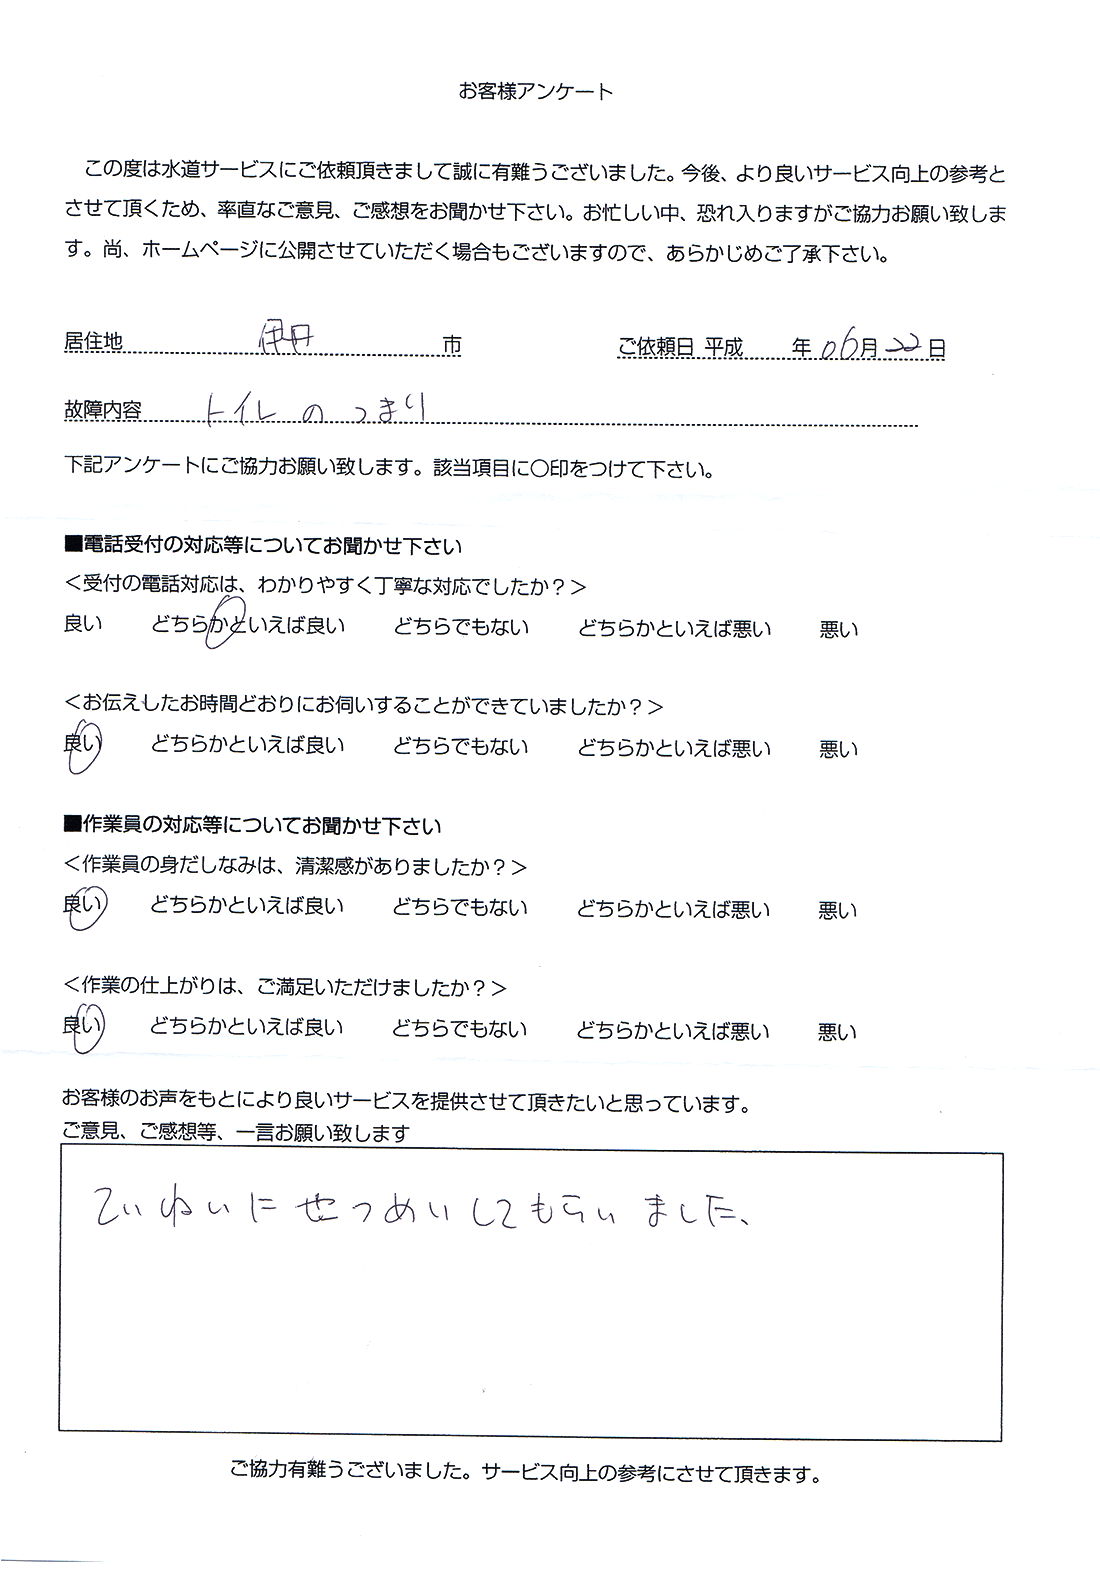 お客様アンケート
この度は水道サービスにご依頼頂きまして誠に有難うございました。今後、より良いサービス向上の参考と
させて頂くため、率直なご意見、ご感想をお聞かせ下さい。お忙しい中、恐れ入りますがご協力お願い致しま
す。尚、ホームページに公開させていただく場合もございますので、あらかじめご了承下さい。
居住地 伊丹 市 ご依頼日 平成 年 06月 22日
故障内容 トイレのつまり
下記アンケートにご協力お願い致します。該当項目に〇印をつけて下さい。
■電話受付の対応等についてお聞かせ下さい
＜受付の電話対応は、わかりやすく丁寧な対応でしたか？＞
良い どちらかといえば良い どちらでもない どちらかといえば悪い 悪い
＜お伝えしたお時間どおりにお伺いすることができていましたか？＞
良い どちらかといえば良い どちらでもない どちらかといえば悪い 悪い
■作業員の対応等についてお聞かせ下さい
＜作業員の身だしなみは、清潔感がありましたか？＞
良い どちらかといえば良い どちらでもない どちらかといえば悪い 悪い
＜作業の仕上がりは、ご満足いただけましたか？＞
良い どちらかといえば良い どちらでもない どちらかといえば悪い 悪い
お客様のお声をもとにより良いサービスを提供させて頂きたいと思っています。
ご意見、ご感想等、一言お願い致します
ていねいにせつめいしてもらいました、
ご協力有難うございました。サービス向上の参考にさせて頂きます。